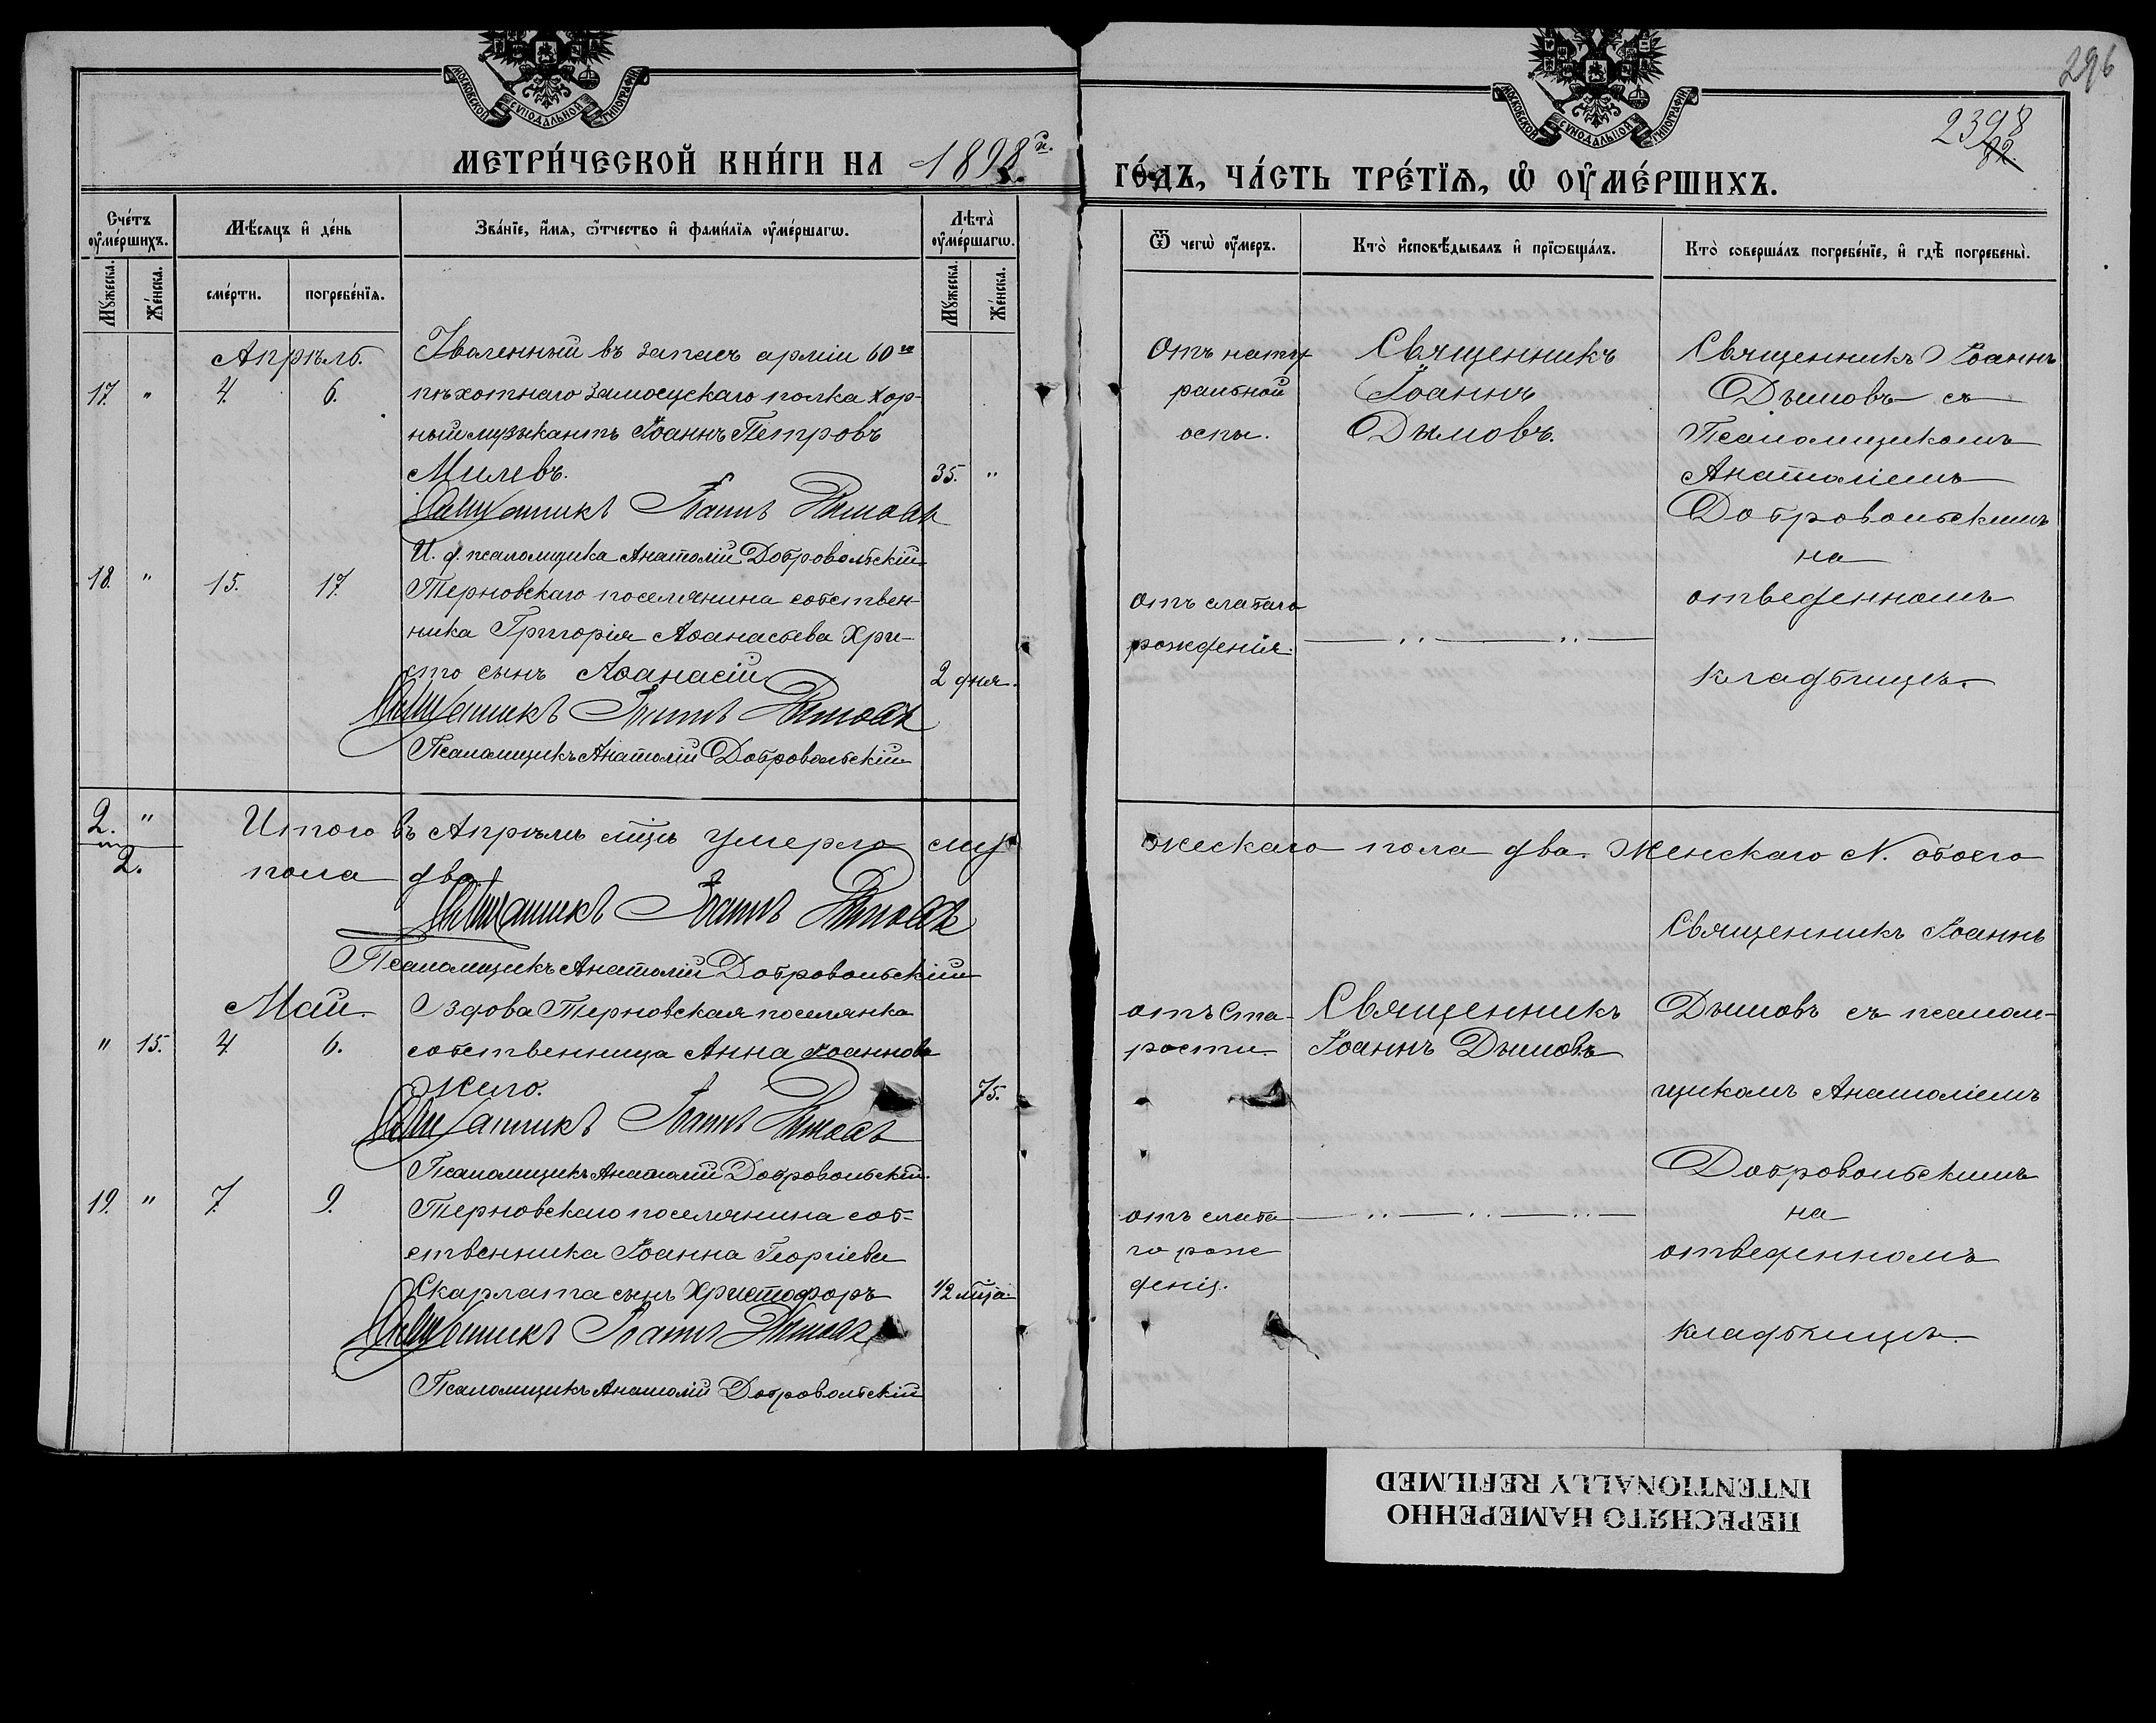 296
2398
82.
МОСКОВСКОЙ СѴНОДАЛЬНОЙ ТИПОГРАФІИ
МОСКОВСКОЙ СѴНОДАЛЬНОЙ ТИПОГРАФІИ
МЕТРИ́ЧЕСКОЙ КНИ́ГИ НА 1898
ГО́ДЪ, ЧА́СТЬ ТРЕ́ТЇѦ, Ѽ ОУ҆МЕ́РШИХЪ.
Сче́тъ оу҆ме́ршихъ.
Мꙋ́жеска.
Же́нска.
Мѣ́сяцъ и҆ де́нь
сме́рти.
погребе́нїѧ.
Зва́нїе, и҆́мѧ, ѻ҆́тчество и҆ фами́лїѧ оу҆ме́ршагѡ.
Лѣта̀ оу҆ме́ршагѡ.
Мꙋ́жеска.
Же́нска.
Ѿ чегѡ̀ оу҆́меръ.
Кто̀ и҆сповѣ́дывалъ и҆ прїѡбща́лъ.
Кто̀ соверша́лъ погребе́нїе, и҆ гдѣ̀ погребены̀.
Апрѣль.
17. " 4. 6.
Уволенный въ запасъ арміи 60го
пѣхотнаго Замосцскаго полка хор-
ный музыкантъ Іоаннъ Петровъ
Милевъ. 35. "
Священникъ Іоаннъ Дымовъ
И. д. псаломщика Анатолій Добровольскій
Отъ нату
ральной
оспы.
Священникъ
Іоаннъ
Дымовъ.
Священникъ Іоаннъ
Дымовъ съ
Псаломщикомъ
Анатоліемъ
Добровольскимъ
на
отведенномъ
кладбищѣ.
18. " 15. 17.
Терновскаго поселянина собствен-
ника Григорія Аѳанасьева Хри-
сто сынъ Аѳанасій 2 дня.
Священникъ Іоаннъ Дымовъ
Псаломщикъ Анатолій Добровольскій
отъ слабаго
рожденія.
— " — " —
2. "
2.
Итого въ Апрѣлѣ мцѣ умерло му
жескаго пола два. Женскаго N. обоего
пола два
Священникъ Іоаннъ Дымовъ
Псаломщикъ Анатолій Добровольскій
Май.
" 15. 4. 6.
Вдова Терновская поселянка
собственница Анна Іоаннова
75.
Священникъ Іоаннъ Дымовъ
Псаломщикъ Анатолій Добровольскій.
отъ ста-
рости
Священникъ
Іоаннъ Дымовъ
Священникъ Іоаннъ
Дымовъ съ псалом-
щикомъ Анатоліемъ
Добровольскимъ
на
отведенномъ
кладбищѣ.
19. " 7. 9.
Терновскаго поселянина соб-
ственника Іоанна Георгіева
Скарлата сынъ Христофоръ 1/2 мца.
Священникъ Іоаннъ Дымовъ
Псаломщикъ Анатолій Добровольскій
отъ слаба
го рож
денія.
— " — " — " —
ПЕРЕСНЯТО НАМЕРЕННО
INTENTIONALLY REFILMED